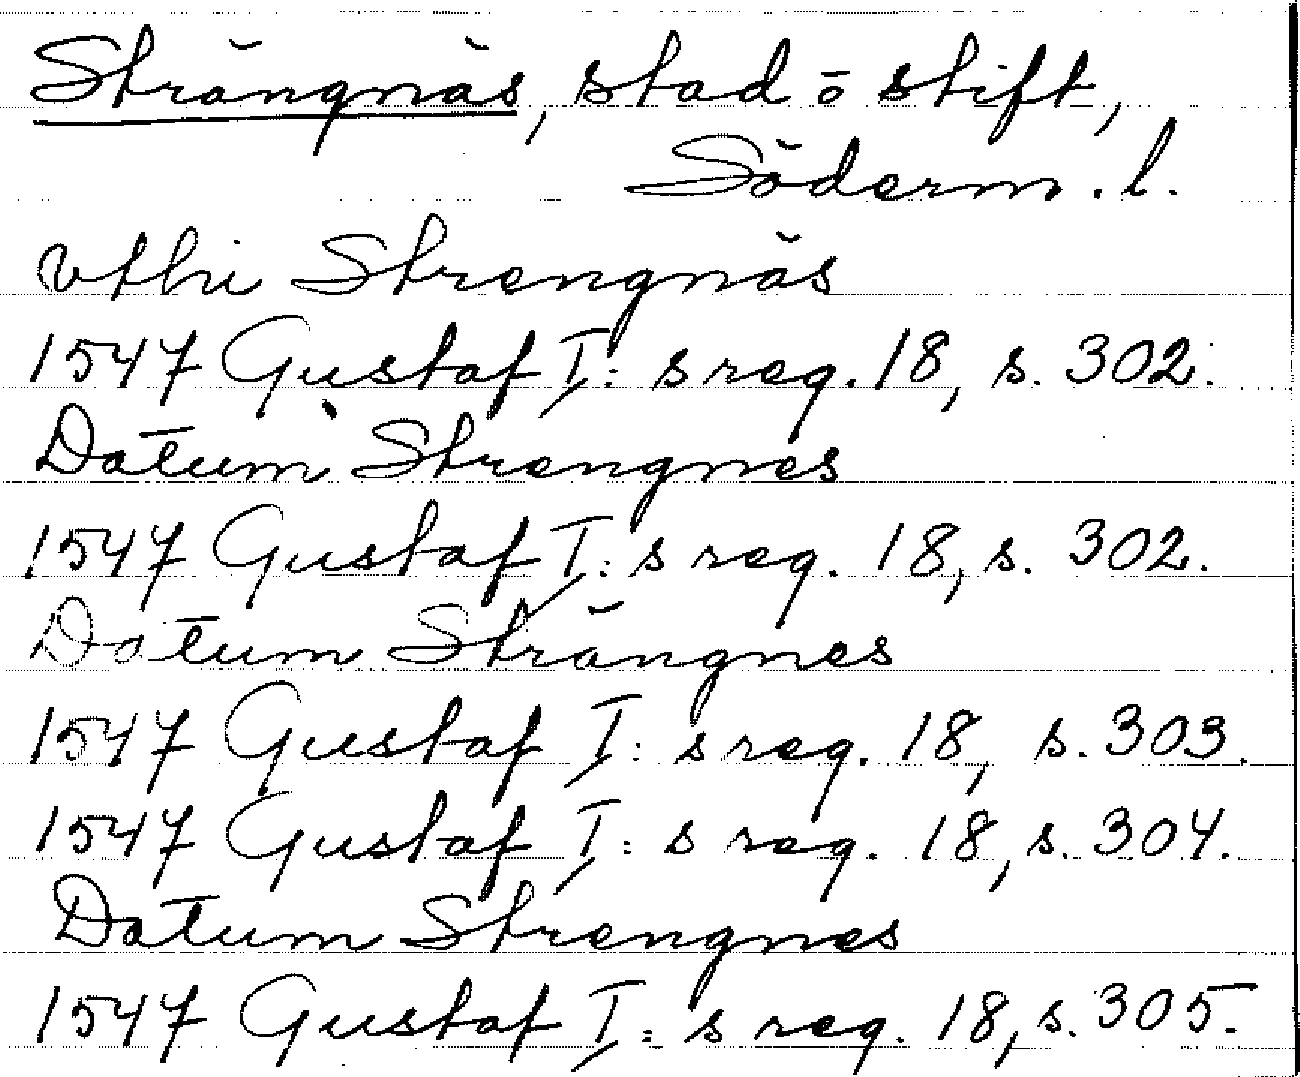 Strängnäs, stad o stift,
Söderm. l.
vthi Strengnäs
1547 Gustaf I: s reg. 18, s. 302.
Datum Strengnes
1547 Gustaf I: s reg. 18, s. 302.
Datum Strängnes
1547 Gustaf I: s reg. 18, s. 303.
1547 Gustaf I: s reg. 18, s. 304.
Datum Strengnes
1547 Gustaf I: s reg. 18, s. 305.